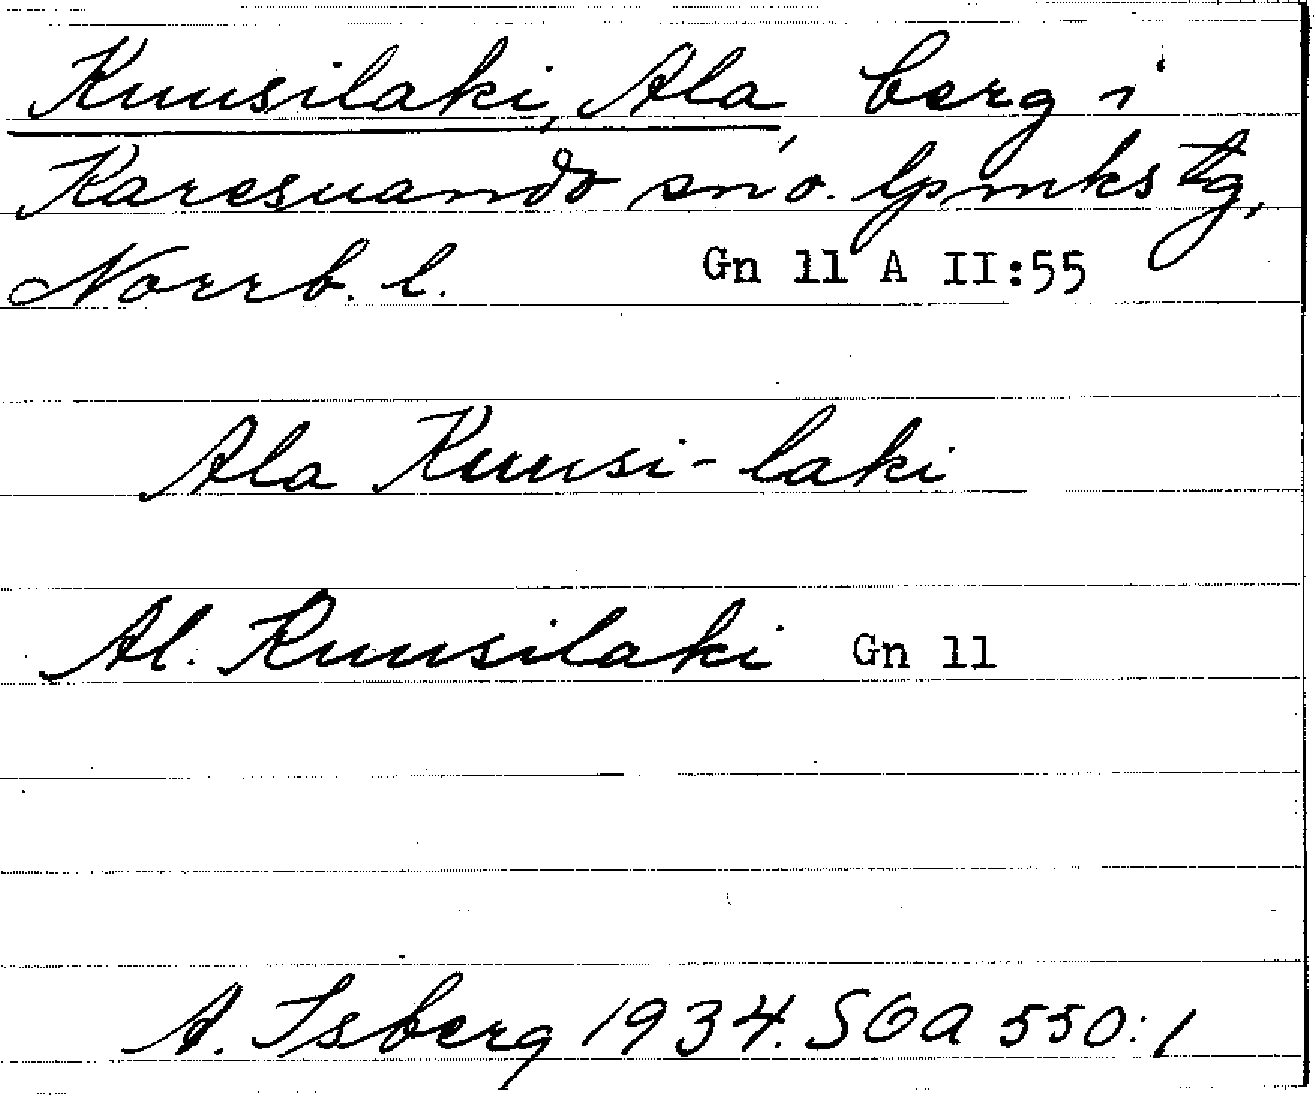 Kuusilaki, Ala, berg i
Karesuando sn o. lpmkstg,
Norrb. l. Gn 11 A II:55
Ala Kuusi-laki
Al. Kuusilaki Gn 11
A. Isberg 1934. SOA 550:1